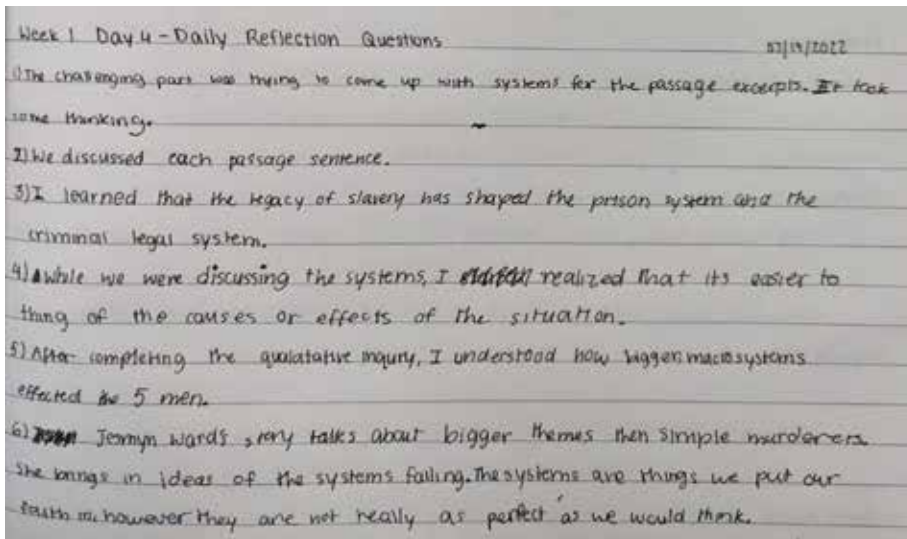 Week 1 Day 4 - Daily Reflection Questions 07/14/2022
1) The challenging part was trying to come up with systems for the passage excerpts. It took
some thinking.
2) We discussed each passage sentence.
3) I learned that the legacy of slavery has shaped the prison system and the
criminal legal system.
4) while we were discussing the systems, I realized that its easier to
thing of the causes or effects of the situation.
5) After completing the qualatative inquiry, I understood how bigger macrosystems
effected 5 men.
6) Jesmyn Wards story talks about bigger themes then simple murderers.
She brings in ideas of the systems failing. The systems are things we put our
faith in, however they are not really as perfect as we would think.